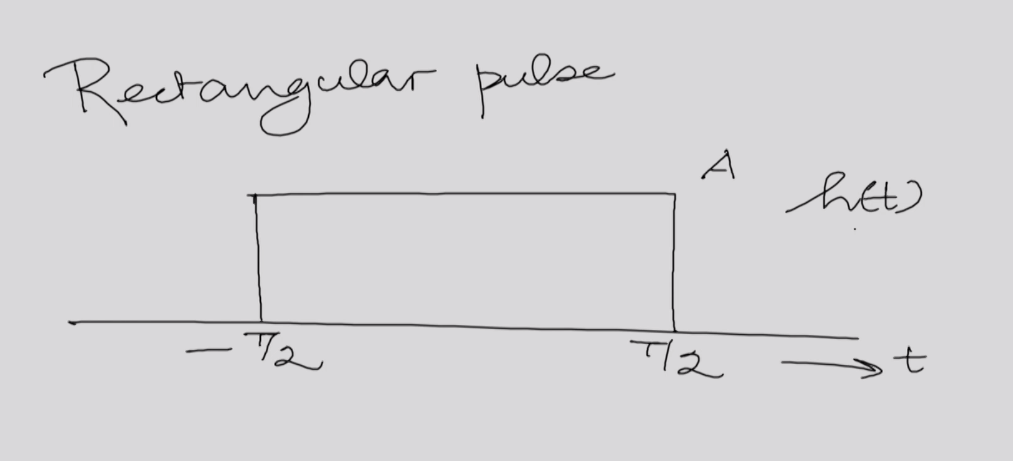 Rectangular pulse
A
h(t)
-T/2
T/2
t